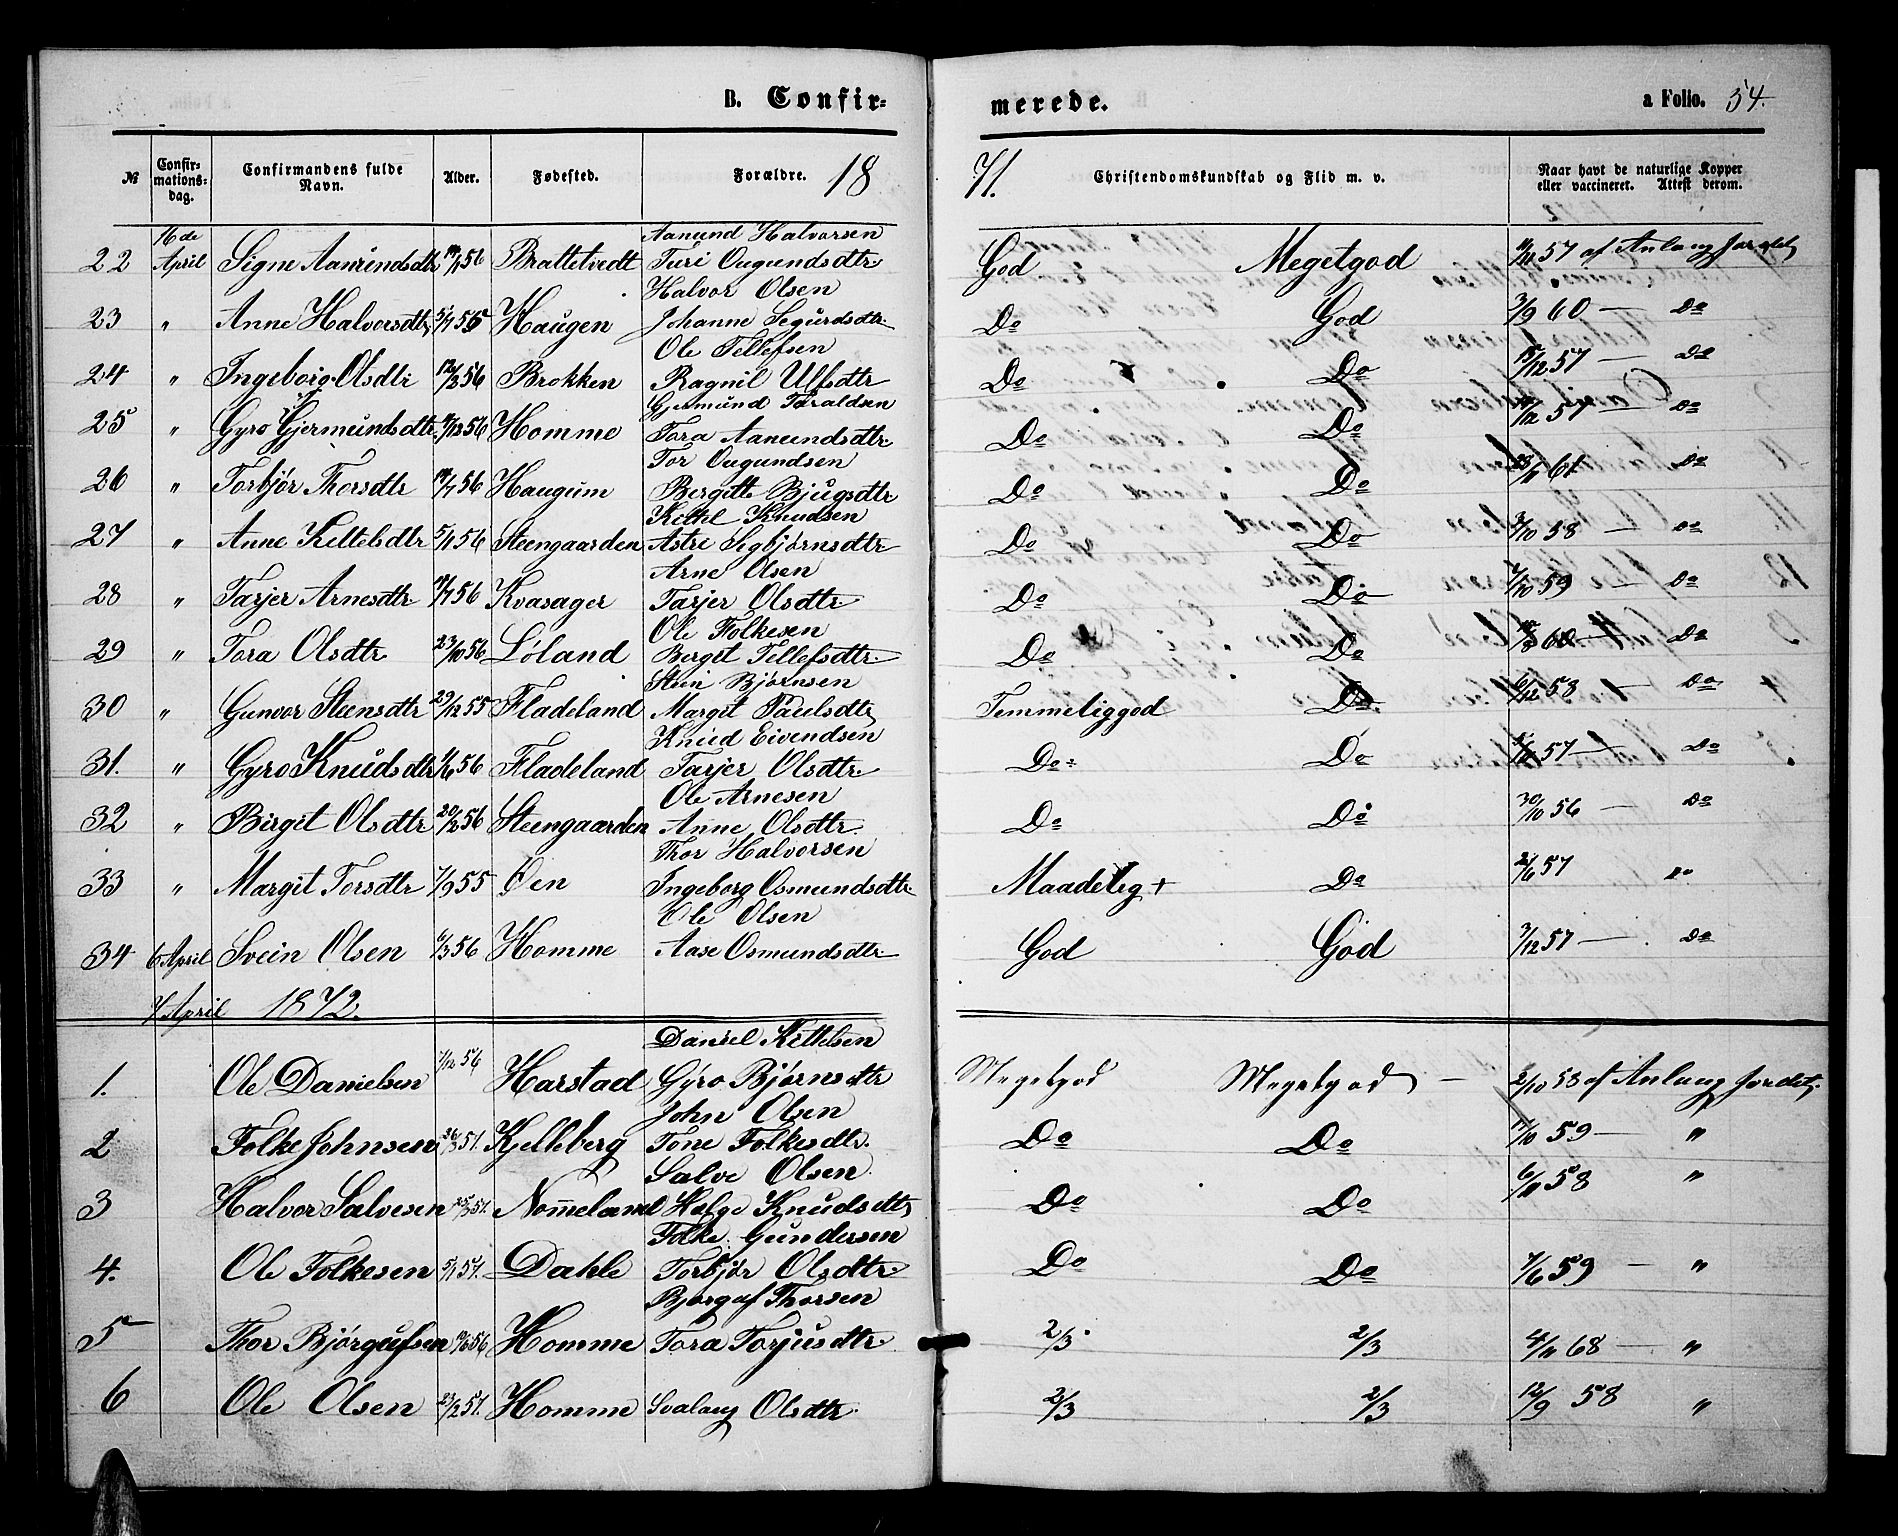 B. Confir= merede. a Folio. 54.
№ Confir=mations=dag. Confirmandens fulde Navn. Alder. Fødested. Forældre. 18 71. Christendomskundskab og Flid m. v. Naar havt de naturlige Kopper eller vaccineret. Attest derom.
16de Aanund Halvorsen
22 April Signe Aanundsdtr 56 Brattetvedt Turi Ougundsdtr. God Megetgod 57 af Anlaug Jordet
Halvor Olsen
23 " Anne Halvorsdtr 55 Haugen Johanne Segurdsdtr. Do God 3/9 60 — Do
Ole Tellefsen
24 " Ingeborg Olsdtr 12/2 56 Brokken Ragnil Ulfsdtr Do Do 15/12 57 — Do
Gjermund Taraldsen
25 " Gyro Gjermundsdtr. 56 Homme Tora Aanundsdtr. Do Do 57 — Do
Tor Ougundsen
26 " Torbjør Thorsdtr 56 Haugum Bergitte Bjugsdtr Do Do 61 Do
Kittel Knudsen
27 " Anne Kittelsdtr 5/1 56 Steengaarden Astri Segbjørnsdtr Do Do 3/10 58 — Do
Arne Olsen
28 " Tarjer Arnesdtr 56 Kvasager Tarjer Olsdtr Do Do 7/10 59 — Do
Ole Folkesen
29 " Tora Olsdtr 23/10 56 Løland Berget Tellefsdtr. Do Do 60 — Do
Stein Bjørnsen
30 " Gunvor Steensdtr 29/12 55 Fladeland Margit Paulsdtr Temmeliggod Do 6/12 58 — Do
Knud Eivendsen
31. " Gyro Knudsdtr 1/6 56 Fladeland Tarjer Olsdtr. Do Do 57 — Do
Ole Arnesen
32 " Birgit Olsdtr 20/2 56 Steengaarden Anne Olsdtr. Do Do 30/10 56 — Do
Thor Halvorsen
33 " Margit Torsdtr 7/9 55 Øen Ingeborg Osmundsdtr. Maadelig + Do 2/6 57 Do
Ole Olsen
34 6 April Svein Olsen 6/3 56 Homme Aase Osmundsdtr God God 3/12 57 — Do
7 April 1872.
Daniel Kittelsen
1. Ole Danielsen 7/12 56 Harstad Gyro Bjørnsdtr Megetgod Megetgod — 2/10 58 af Anlaug Jordet
John Olsen
2 Folke Johnsen 26/3 57. Kjelleberg Tone Folkesdtr. Do Do 59 — "
Salve Olsen
3 Halvor Salvesen 57. Nomeland Helge Knudsdtr Do Do 6/11 58 "
Folke Gundersen
4. Ole Folkesen 5/1 57. Dahle Torbjør Olsdtr. Do Do 7/6 59 — "
Bjørguf Thorsen
5 Thor Bjørgufsen 56 Homme Tora Torjusdtr. 2/3. 2/3 4/11 68 — "
6 Ole Olsen 23/2 57. Homme Svalaug Olsdtr. 2/3 2/3 12/9 58 "